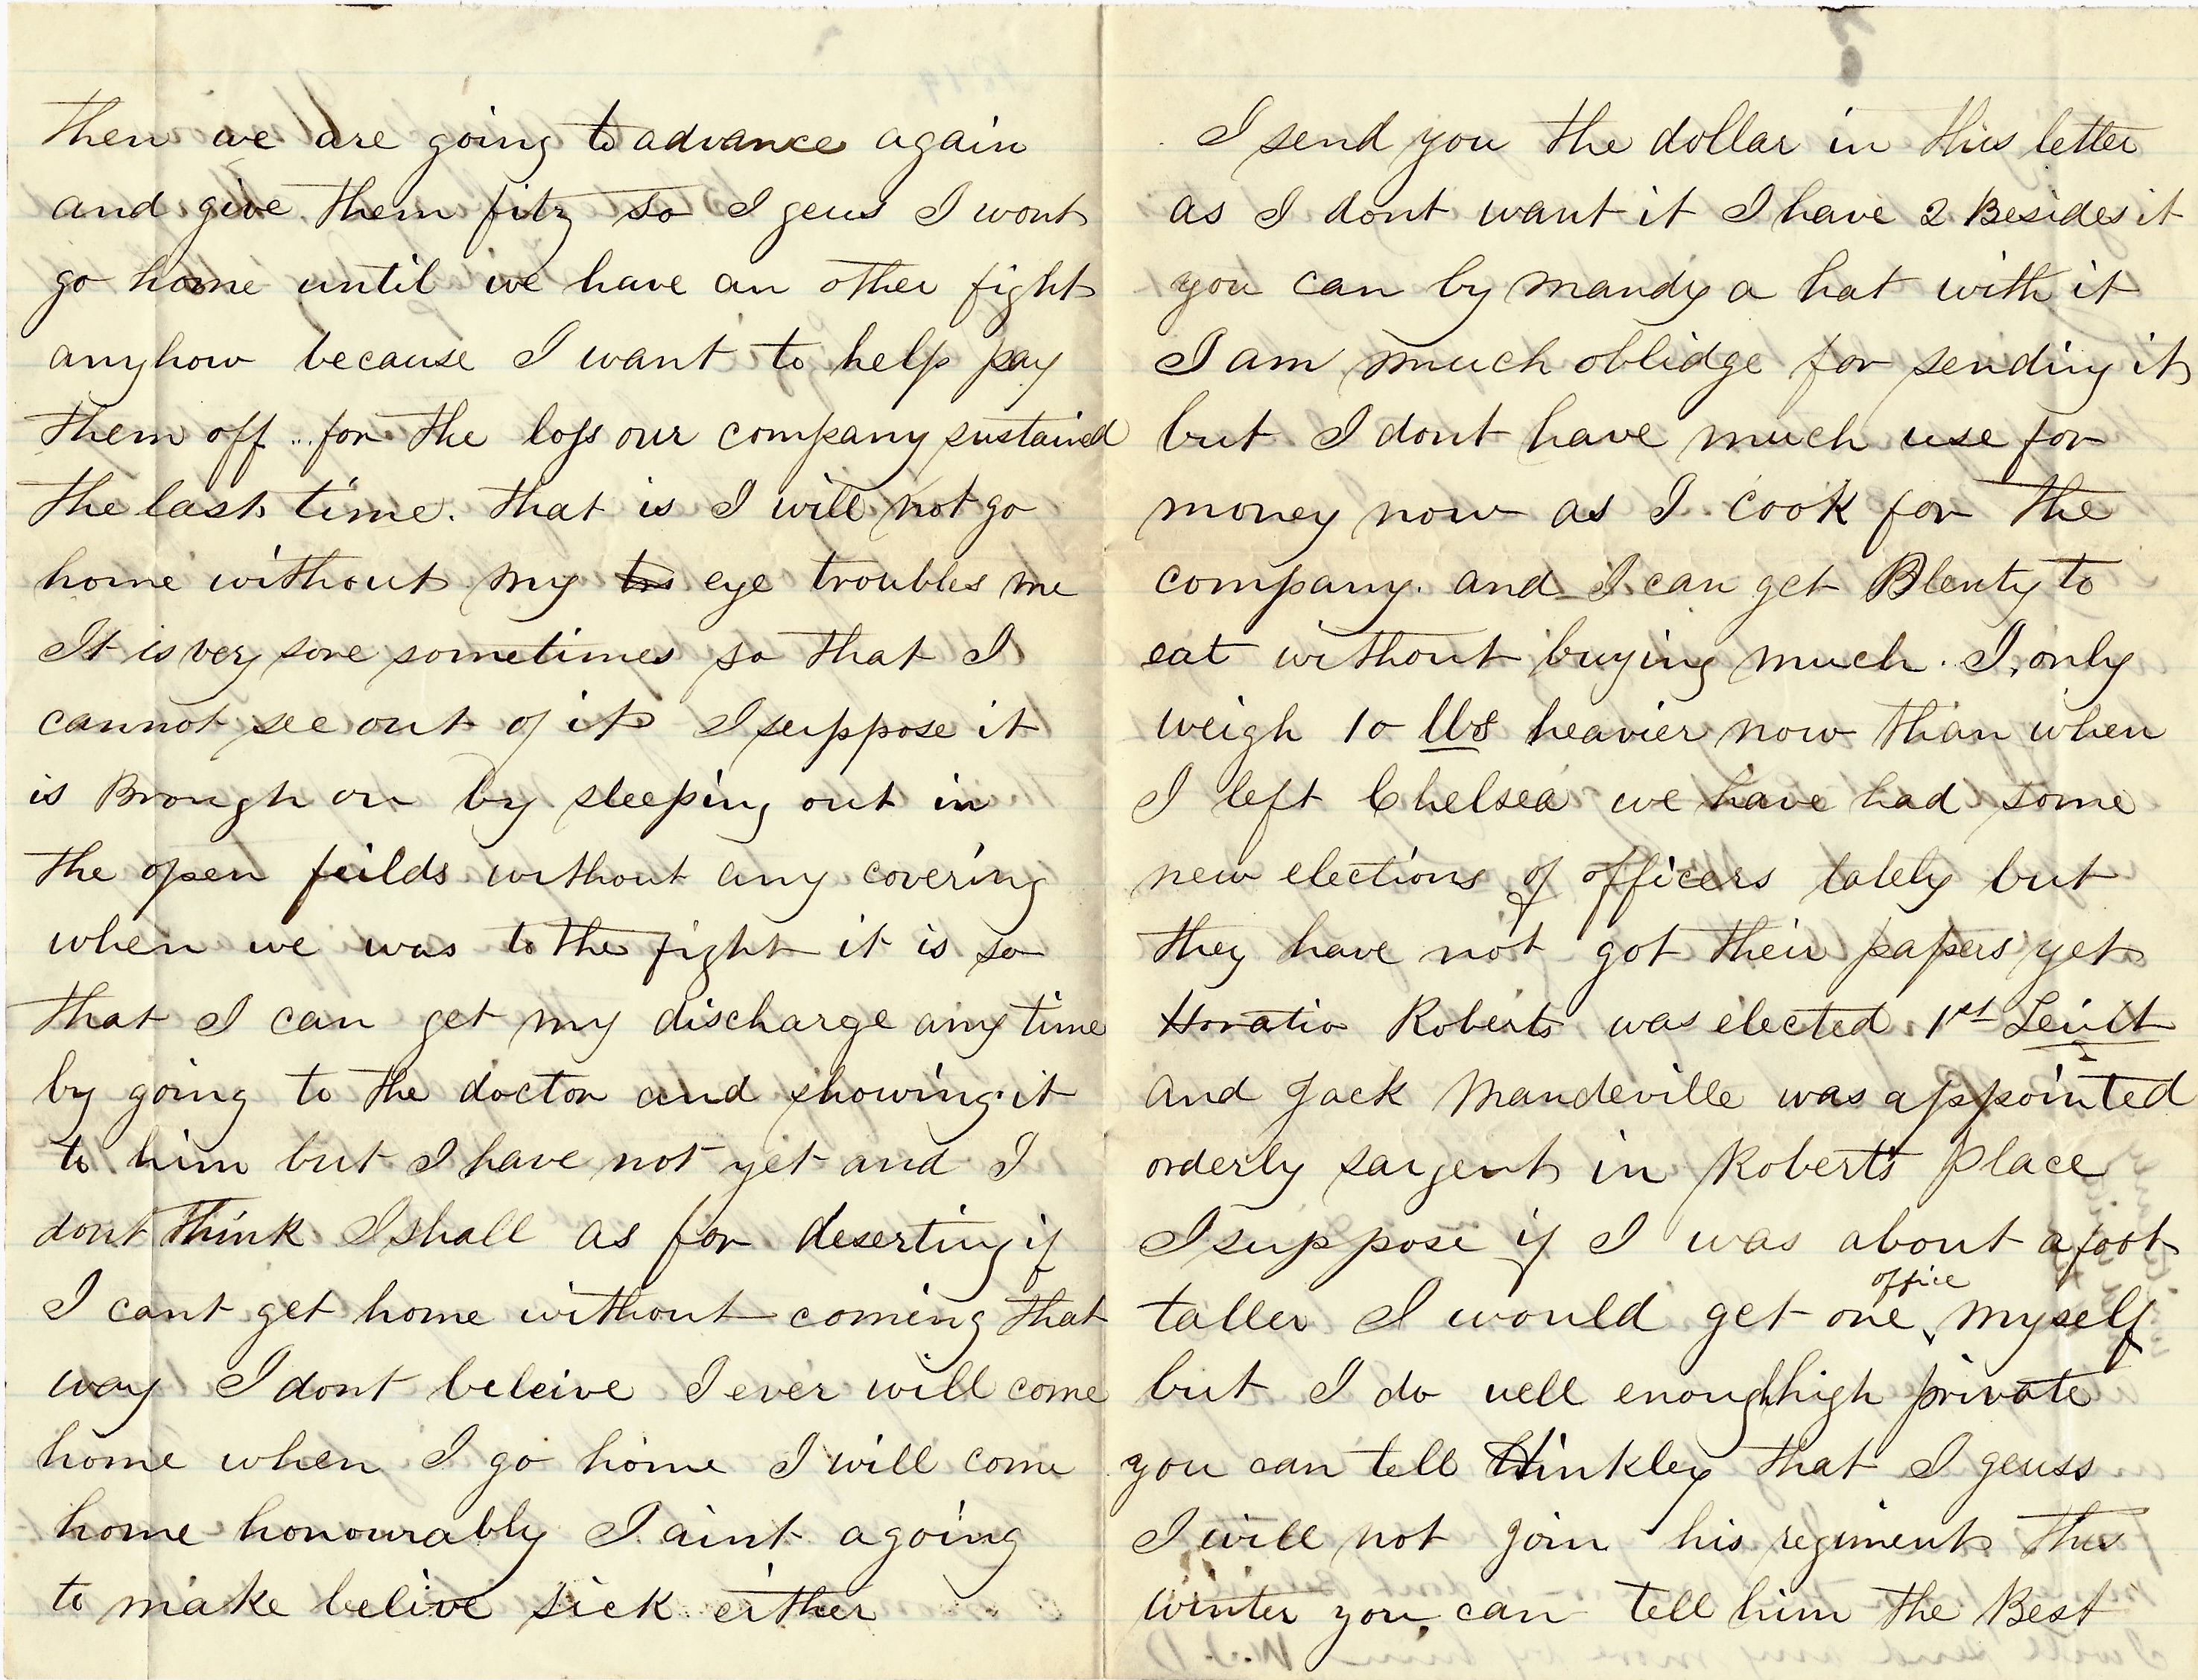 then we are going to advance again
and give them fitz so I geus I wont
go home until we have an other fight
anyhow because I want to help pay
them off for the loss our company sustained
the last time. that is I will not go
home without my eye troubles me
It is very sore sometimes so that I
cannot see out of it I suppose it
is Brough on by sleeping out in
the open feilds without any covering
when we was to the fight it is so
that I can get my discharge any time
by going to the doctor and showing it
to him but I have not yet and I
dont think I shall as for deserting if
I cant get home without coming that
way I dont beleive I ever will come
home when I go home I will come
home honourably I aint agoing
to make belive sick either
I send you the dollar in this letter
as I dont want it I have 2 Besides it
you can by mandy a hat with it
I am much oblidge for sending it
but I dont have much use for
money now as I cook for the
company. and I can get Plenty to
eat without buying much. I only
weigh 10 lbs heavier now than when
I left Chelsea we have had some
new elections of officers lately but
they have not got their papers yet
Horatio Roberts was elected 1st Leiut
and Jack Mandeville was appointed
orderly sargent in Roberts place
I suppose if I was about a foot
taller I would get one office myself
but I do well enough high private
you can tell Hinkley that I geuss
I will not join his regiment this
winter you can tell him the Best